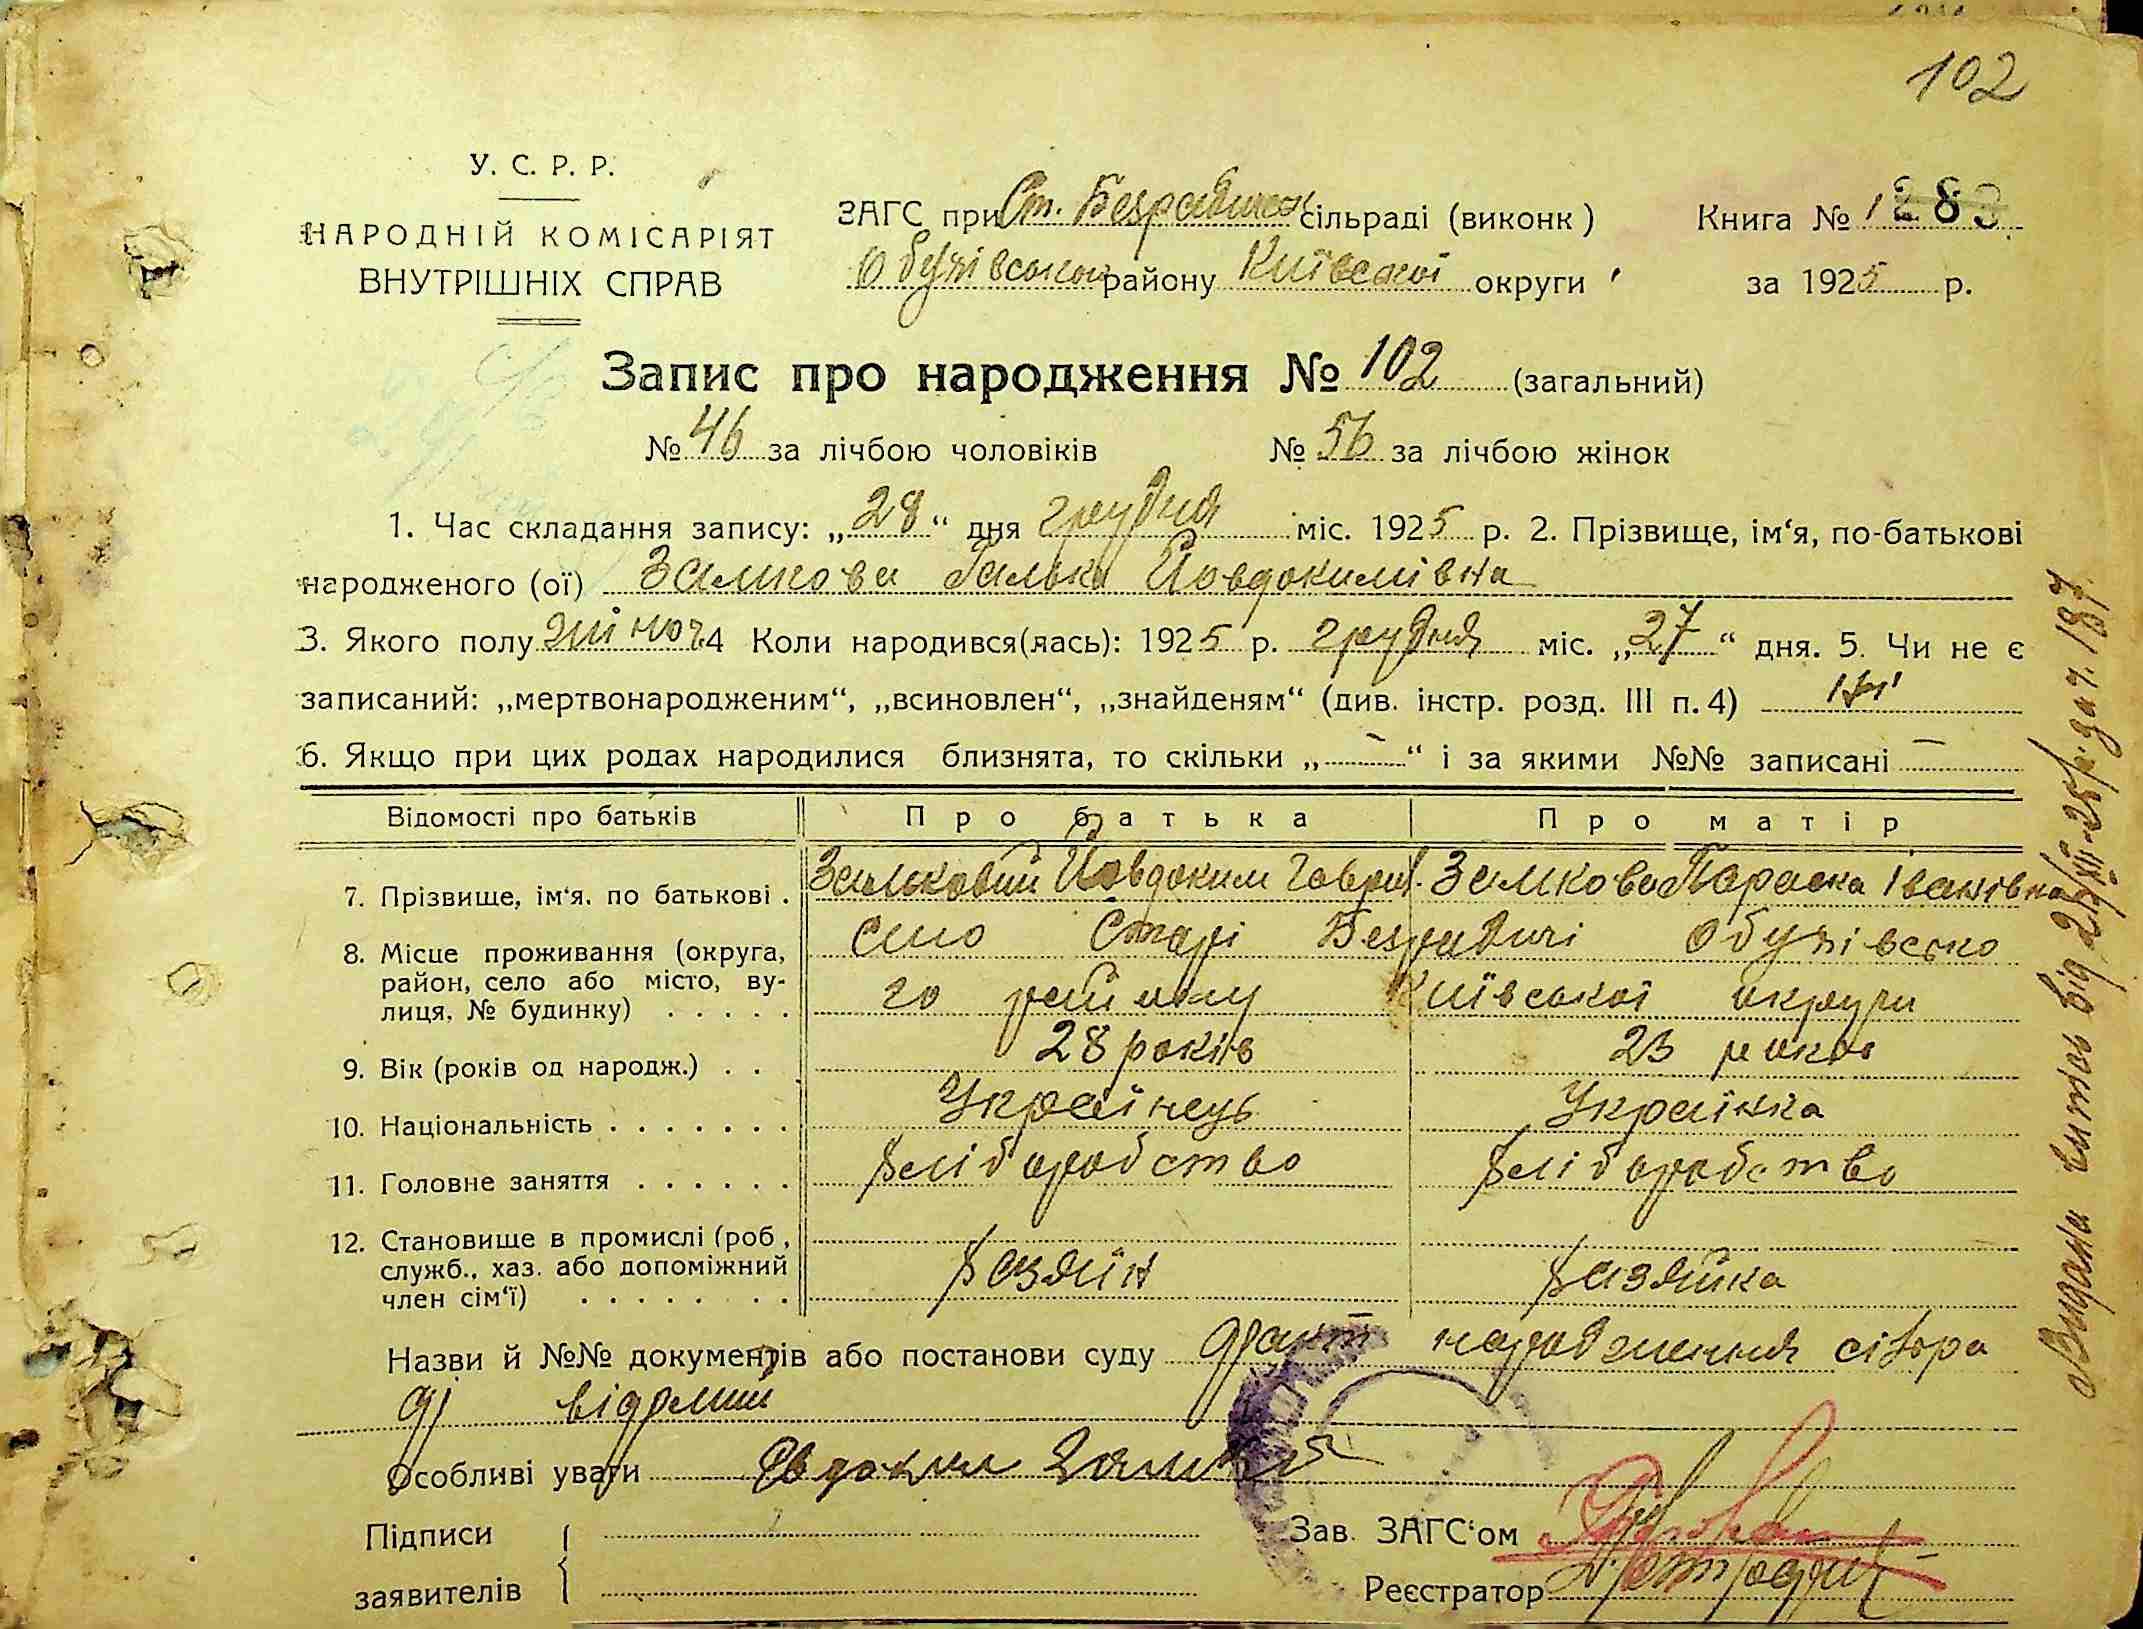 102
У. С. Р. Р.
НАРОДНІЙ КОМІСАРІЯТ
ВНУТРІШНІХ СПРАВ
ЗАГС при Ст. Безрадицкій сільраді (виконк )
Обухівського району Київської округи
Книга № 1283
за 1925 р.
Запис про народження № 102 (загальний)
№ 46 за лічбою чоловіків № 56 за лічбою жінок
1. Час складання запису: „28“ дня грудня міс. 1925 р. 2. Прізвище, ім‘я, по-батькові
народженого (ої) Замкова Галька Йовдокимівна
3. Якого полу жіноч. 4 Коли народився(лась): 1925 р. грудня міс. „27“ дня. 5. Чи не є
записаний: „мертвонародженим“, „всиновлен“, „знайденям“ (див. інстр. розд. III п. 4) ні
6. Якщо при цих родах народилися близнята, то скільки „—“ і за якими №№ записані —
Відомості про батьків Про батька Про матір
7. Прізвище, ім‘я. по батькові . Замковий Йовдоким Гаврил. Замкова Параска Іванівна
8. Місце проживання (округа, село Старі Безрадичі Обухівсько
район, село або місто, ву-
лиця, № будинку) . . . . . го району Київської округи
9. Вік (років од народж.) . . . 28 років 23 роков
10. Національність . . . . . . . Українець Українка
11. Головне заняття . . . . . . Хліборобство Хліборобство
12. Становище в промислі (роб ,
служб., хаз. або допоміжний Хазяїн Хазяйка
член сім‘ї) . . . . . . . .
Назви й №№ документів або постанови суду факт народження сільра
ді відомий
Особливі уваги Євдоким Замковий
Підписи
заявителів
Зав. ЗАГС‘ом
Реєстратор
Видана витяг від 28/XII-25р. за ч. 187.